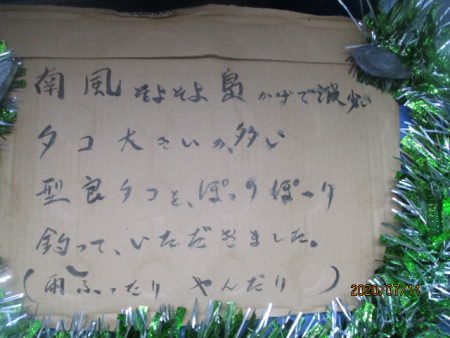 南風そよそよ島かげで波少い
タコ大きいの、多い
型良タコを、ぽつりぽつり
釣って、いただきました。
(雨ふったり やんだり )
2020/07/11